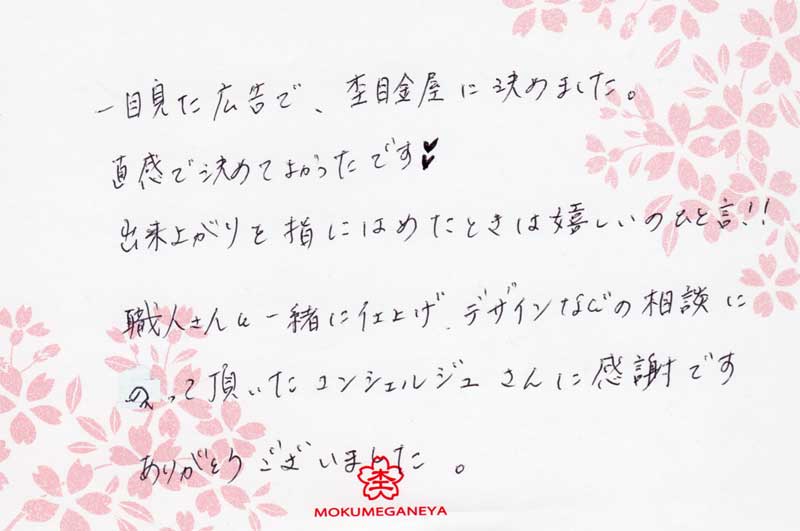 一目見た広告で、杢目金屋に決めました。
直感で決めてよかったです♥♥
出来上がりを指にはめたときは嬉しいのひと言!!
職人さんと一緒に仕上げ、デザインなどの相談に
のって頂いたコンシェルジュさんに感謝です
ありがとうございました。
杢
MOKUMEGANEYA